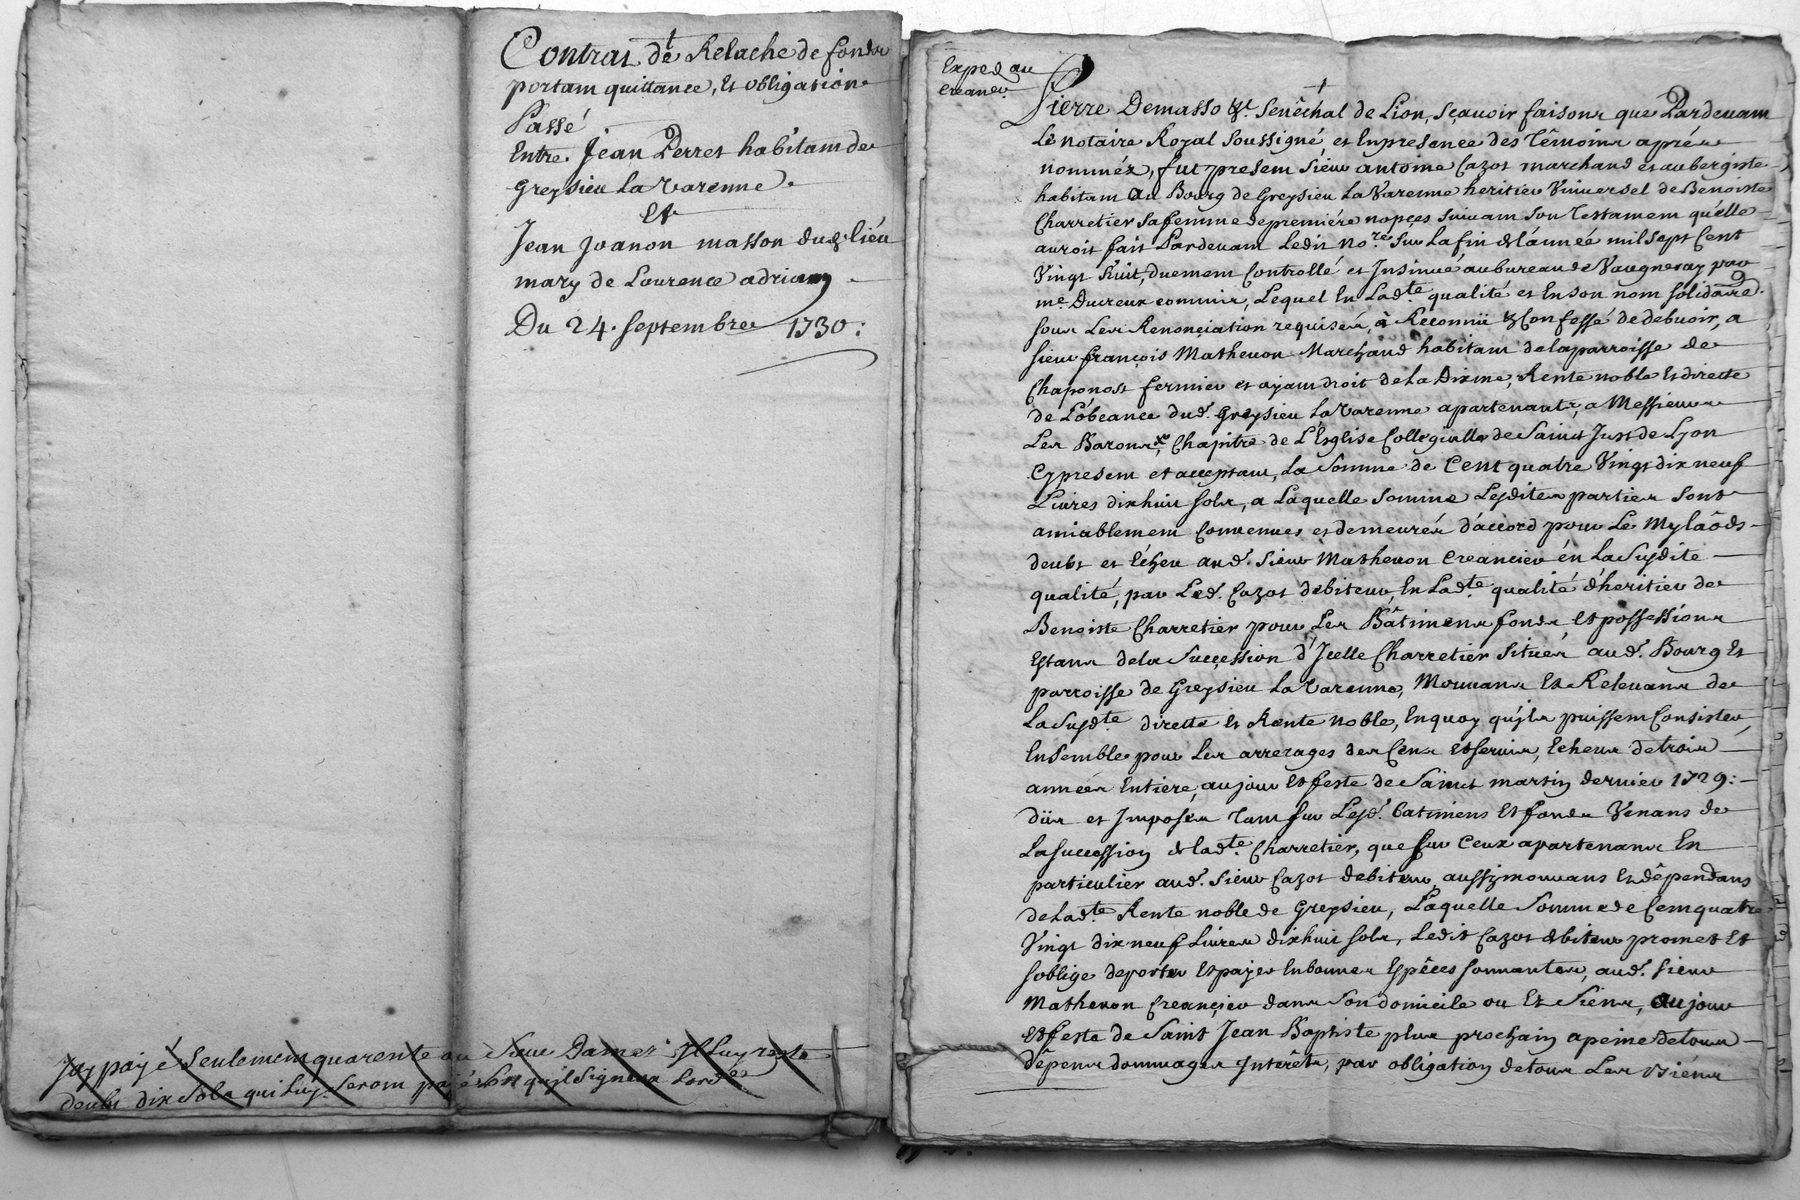 Contrat de Relache de fonds
portant quittance, Et obligation
Passé
Entre Jean Perret habitant de
Greysieu La Varenne.
Et
Jean Joanon masson dud. lieu
mary de Laurence adriany
Du 24. septembre 1730:
Jay payé Seulement quarente au Sieur Il Luy reste
deubs dix Sols qui Luy Seront payés
Exped au
creancr.
Pierre Demasso &c. Senêchal de Lion, sçavoir faisons que Pardevant
Le notaire Royal Soussigné et En presence des Têmoins aprés
nomméz, fut present Sieur antoine Cazot marchand et aubergiste
habitant au Bourg de Greysieu La Varenne heritier Universel de Benoiste
Charretier sa femme de premiére nopçes suivant son Testament qu'elle
auroit fait Pardevant Ledit No.re Sur La fin de l'année mil sept Cent
Vingt huit, duement Controllé et Insinué au bureau de Vaugneray par
me. Ducreux commis, Lequel En Lad.te qualité et En son nom solidaire
sous Les Renonçiation requises, à Reconnü & Confessé de debvoir, a
sieur françois Mathevon Marchand habitant de la parroisse de
Chaponost fermier et ayant droit de La Dixme, Rente noble Et directe
de L'obeance dud. Greysieu La Varenne apartenants, a Messieurs
Les Barons, Chapitre de L'Esglise Collegialle de Saint Just de Lyon
Cy present et acceptant, La Somme de Cent quatre Vingt dix neuf
Livres dix huit sols, a Laquelle Somme Lesdites parties sont
amiablement Convenues et demeurés d'accord pour Le Mylaôds
deubt et Echeu aud. Sieur Mathevon Creancier én La Susdite
qualité, par Led. Cazot debiteur, En Lad.te qualité d'heritier de
Benoiste Charretier pour Les Bâtimens fonds Et possessions
Estans de la Sucçession d'Icelle Charretier Situés aud. Bourg Et
parroisse de Greysieu La Varenne, Mouvans Et Relevans de
La Susd.te directe Et Rente noble, En quoy qu'jls puissent Consister,
Ensemble pour Les arrerages des Cens Et Servis, Echeus de trois
années Entiere, au jour Et feste de Saint martin dernier 1729:
düs et Imposés Tant sur Lesd. batimens Et fonds Venans de
La Succession de lad.te Charretier, que Sur Ceux apartenans En
particulier aud. Sieur Cazot debiteur, aussy mouvans Et dêpendans
de Lad.te Rente noble de Greysieu, Laquelle Somme de Cent quatre
Vingt dix neuf Livres dix huit sols, Ledit Cazot debiteur promet Et
s'oblige de porter Et payer En bonnes Espêces sonnantes, aud. sieur
Mathevon Creancier dans Son domicile ou Et Siens, au jour
Et feste de Saint Jean Baptiste plus prochain a peine de tous
dêpens dommages Intérêts, par obligation de tous Les biéns